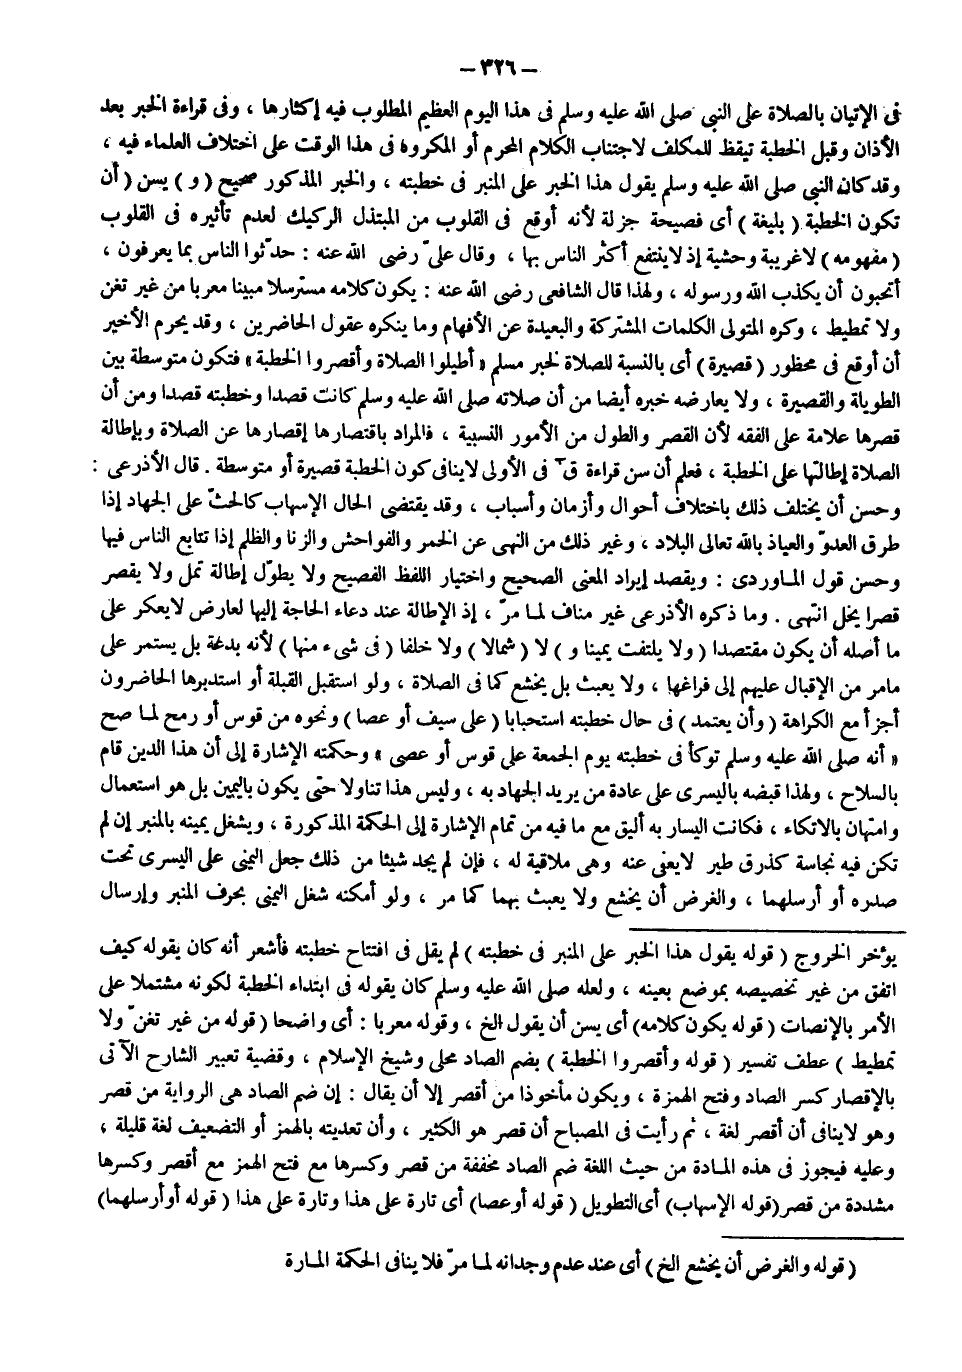 – ٣٢٦ –
فى الإتيان بالصلاة على النبى صلى الله عليه وسلم فى هذا اليوم العظيم المطلوب فيه إكثارها ، وفى قراءة الخبر بعد
الأذان وقبل الخطبة تيقظ للمكلف لاجتناب الكلام المحرم أو المكروه فى هذا الوقت على اختلاف العلماء فيه ،
وقد كان النبى صلى الله عليه وسلم يقول هذا الخبر على المنبر فى خطبته ، والخبر المذكور صحيح ( و ) يسن ( أن
تكون الخطبة ( بليغة ) أى فصيحة جزلة لأنه أوقع فى القلوب من المبتذل الركيك لعدم تأثيره فى القلوب
( مفهومه ) لاغريبة وحشية إذ لاينتفع أكثر الناس بها ، وقال علىّ رضى الله عنه : حدّثوا الناس بما يعرفون ،
أتحبون أن يكذب الله ورسوله ، ولهذا قال الشافعى رضى الله عنه : يكون كلامه مسترسلا مبينا معربا من غير تغن
ولا تمطيط ، وكره المتولى الكلمات المشتركة والبعيدة عن الأفهام وما ينكره عقول الحاضرين ، وقد يحرم الأخير
أن أوقع فى محظور ( قصيرة ) أى بالنسبة للصلاة لخبر مسلم « أطيلوا الصلاة وأقصروا الخطبة » فتكون متوسطة بين
الطويلة والقصيرة ، ولا يعارضه خبره أيضا من أن صلاته صلى الله عليه وسلم كانت قصدا وخطبته قصدا ومن أن
قصرها علامة على الفقه لأن القصر والطول من الأمور النسبية ، فالمراد باقتصارها إقصارها عن الصلاة وبإطالة
الصلاة إطالتها على الخطبة ، فعلم أن سن قراءة قۤ فى الأولى لاينافى كون الخطبة قصيرة أو متوسطة . قال الأذرعى :
وحسن أن يختلف ذلك باختلاف أحوال وأزمان وأسباب ، وقد يقتضى الحال الإسهاب كالحثّ على الجهاد إذا
طرق العدوّ والعياذ بالله تعالى البلاد ، وغير ذلك من النهى عن الخمر والفواحش والزنا والظلم إذا تتابع الناس فيها
وحسن قول الماوردى : ويقصد إيراد المعنى الصحيح واختيار اللفظ الفصيح ولا يطوّل إطالة تمل ولا يقصر
قصرا يخل انتهى . وما ذكره الأذرعى غير مناف لما مرّ ، إذ الإطالة عند دعاء الحاجة إليها لعارض لايعكر على
ما أصله أن يكون مقتصدا ( ولا يلتفت يمينا و ) لا ( شمالا ) ولا خلفا ( فى شىء منها ) لأنه بدعة بل يستمر على
مامر من الإقبال عليهم إلى فراغها ، ولا يعبث بل يخشع كما فى الصلاة ، ولو استقبل القبلة أو استدبرها الحاضرون
أجزأ مع الكراهة ( وأن يعتمد ) فى حال خطبته استحبابا ( على سيف أو عصا ) ونحوه من قوس أو رمح لما صح
« أنه صلى الله عليه وسلم توكأ فى خطبته يوم الجمعة على قوس أو عصى » وحكمته الإشارة إلى أن هذا الدين قام
بالسلاح ، ولهذا قبضه باليسرى على عادة من يريد الجهاد به ، وليس هذا تناولا حتى يكون باليمين بل هو استعمال
وامتهان بالاتكاء ، فكانت اليسار به أليق مع ما فيه من تمام الإشارة إلى الحكمة المذكورة ، ويشغل يمينه بالمنبر إن لم
تكن فيه نجاسة كذرق طير لايعفى عنه وهى ملاقية له ، فإن لم يجد شيئا من ذلك جعل اليمنى على اليسرى تحت
صدره أو أرسلهما ، والغرض أن يخشع ولا يعبث بهما كما مر ، ولو أمكنه شغل اليمنى بحرف المنبر وإرسال
يؤخر الخروج ( قوله يقول هذا الخبر على المنبر فى خطبته ) لم يقل فى افتتاح خطبته فأشعر أنه كان يقوله كيف
اتفق من غير تخصيصه بموضع بعينه ، ولعله صلى الله عليه وسلم كان يقوله فى ابتداء الخطبة لكونه مشتملا على
الأمر بالإنصات ( قوله يكون كلامه) أى يسن أن يقول الخ ، وقوله معربا : أى واضحا ( قوله من غير تغنّ ولا
تمطيط ) عطف تفسير ( قوله وأقصروا الخطبة ) بضم الصاد محلى وشيخ الإسلام ، وقضية تعبير الشارح الآتى
بالإقصار كسر الصاد وفتح الهمزة ، ويكون مأخوذا من أقصر إلا أن يقال : إن ضم الصاد هى الرواية من قصر
وهو لاينافى أن أقصر لغة ، ثم رأيت فى المصباح أن قصر هو الكثير ، وأن تعديته بالهمز أو التضعيف لغة قليلة ،
وعليه فيجوز فى هذه المادة من حيث اللغة ضم الصاد مخففة من قصر وكسرها مع فتح الهمز مع أقصر وكسرها
مشددة من قصر(قوله الإسهاب) أى التطويل ( قوله أوعصا) أى تارة على هذا وتارة على هذا ( قوله أوأرسلهما)
( قوله والغرض أن يخشع الخ ) أى عند عدم وجدانه لما مرّ فلا ينافى الحكمة المارة